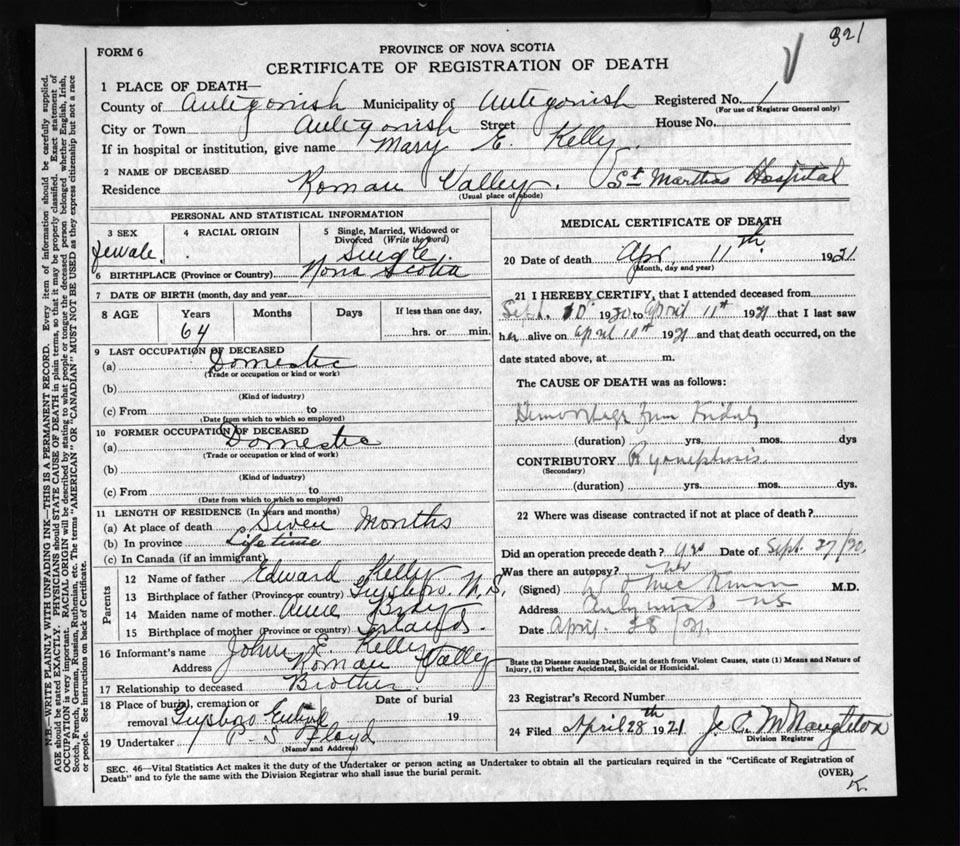 321
FORM 6
PROVINCE OF NOVA SCOTIA
CERTIFICATE OF REGISTRATION OF DEATH
1 PLACE OF DEATH—
County of Antigonish Municipality of Antigonish Registered No. 1
(For use of Registrar General only)
City or Town Antigonish Street House No.
If in hospital or institution, give name Mary E. Kelly.
2 NAME OF DECEASED
Residence Roman Valley. St Marthas Hospital
(Usual place of abode)
PERSONAL AND STATISTICAL INFORMATION
3 SEX 4 RACIAL ORIGIN 5 Single, Married, Widowed or Divorced (Write the word)
female. Single.
6 BIRTHPLACE (Province or Country) Nova Scotia
7 DATE OF BIRTH (month, day and year)
8 AGE Years Months Days If less than one day,
64 hrs. or min.
9 LAST OCCUPATION OF DECEASED
(a) Domestic
(Trade or occupation or kind or work)
(b)
(Kind of industry)
(c) From to
(Date from which to which so employed)
10 FORMER OCCUPATION OF DECEASED
(a) Domestic
(Trade or occupation or kind or work)
(b)
(Kind of industry)
(c) From to
(Date from which to which so employed)
11 LENGTH OF RESIDENCE (In years and months)
(a) At place of death Seven Months
(b) In province Lifetime
(c) In Canada (if an immigrant)
Parents
12 Name of father Edward Kelly
13 Birthplace of father (Province or country) Guysboro. N.S.
14 Maiden name of mother Annie
15 Birthplace of mother (Province or country)
16 Informant's name John E. Kelly
Address Roman Valley
17 Relationship to deceased Brother.
18 Place of burial, cremation or Date of burial
removal Guysboro 19
19 Undertaker P. S. Floyd
(Name and Address)
MEDICAL CERTIFICATE OF DEATH
20 Date of death Apr. 11th. 1921
(Month, day and year)
21 I HEREBY CERTIFY, that I attended deceased from
Sept. 10 1920 to April 11th 1921 that I last saw
her alive on April 10th 1921 and that death occurred, on the
date stated above, at m.
The CAUSE OF DEATH was as follows:
Hemorrhage from Kidney
(duration) yrs. mos. dys
CONTRIBUTORY Pyonephrosis.
(Secondary)
(duration) yrs. mos. dys.
22 Where was disease contracted if not at place of death?
Did an operation precede death? yes Date of Sept. 27/20.
Was there an autopsy? No
(Signed) M.D.
Address Antigonish NS
Date April. 28/21.
State the Disease causing Death, or in death from Violent Causes, state (1) Means and Nature of
Injury, (2) whether Accidental, Suicidal or Homicidal.
23 Registrar's Record Number
24 Filed April 28th 1921 J. C. McNaughton
Division Registrar
SEC. 46—Vital Statistics Act makes it the duty of the Undertaker or person acting as Undertaker to obtain all the particulars required in the "Certificate of Registration of
Death" and to fyle the same with the Division Registrar who shall issue the burial permit.
(OVER)
K.
N.B.—WRITE PLAINLY WITH UNFADING INK—THIS IS A PERMANENT RECORD. Every item of information should be carefully supplied.
AGE should be stated EXACTLY. PHYSICIANS should STATE CAUSE OF DEATH in plain terms, so that it may be properly classified. Exact statement of
OCCUPATION is very important. RACIAL ORIGIN will be described by stating to what people or tongue the deceased person belonged whether English, Irish,
Scotch, French, German, Russian, Ruthenian, etc. The terms "AMERICAN" OR "CANADIAN" MUST NOT BE USED as they express citizenship but not a race
or people. See instructions on back of Certificate.